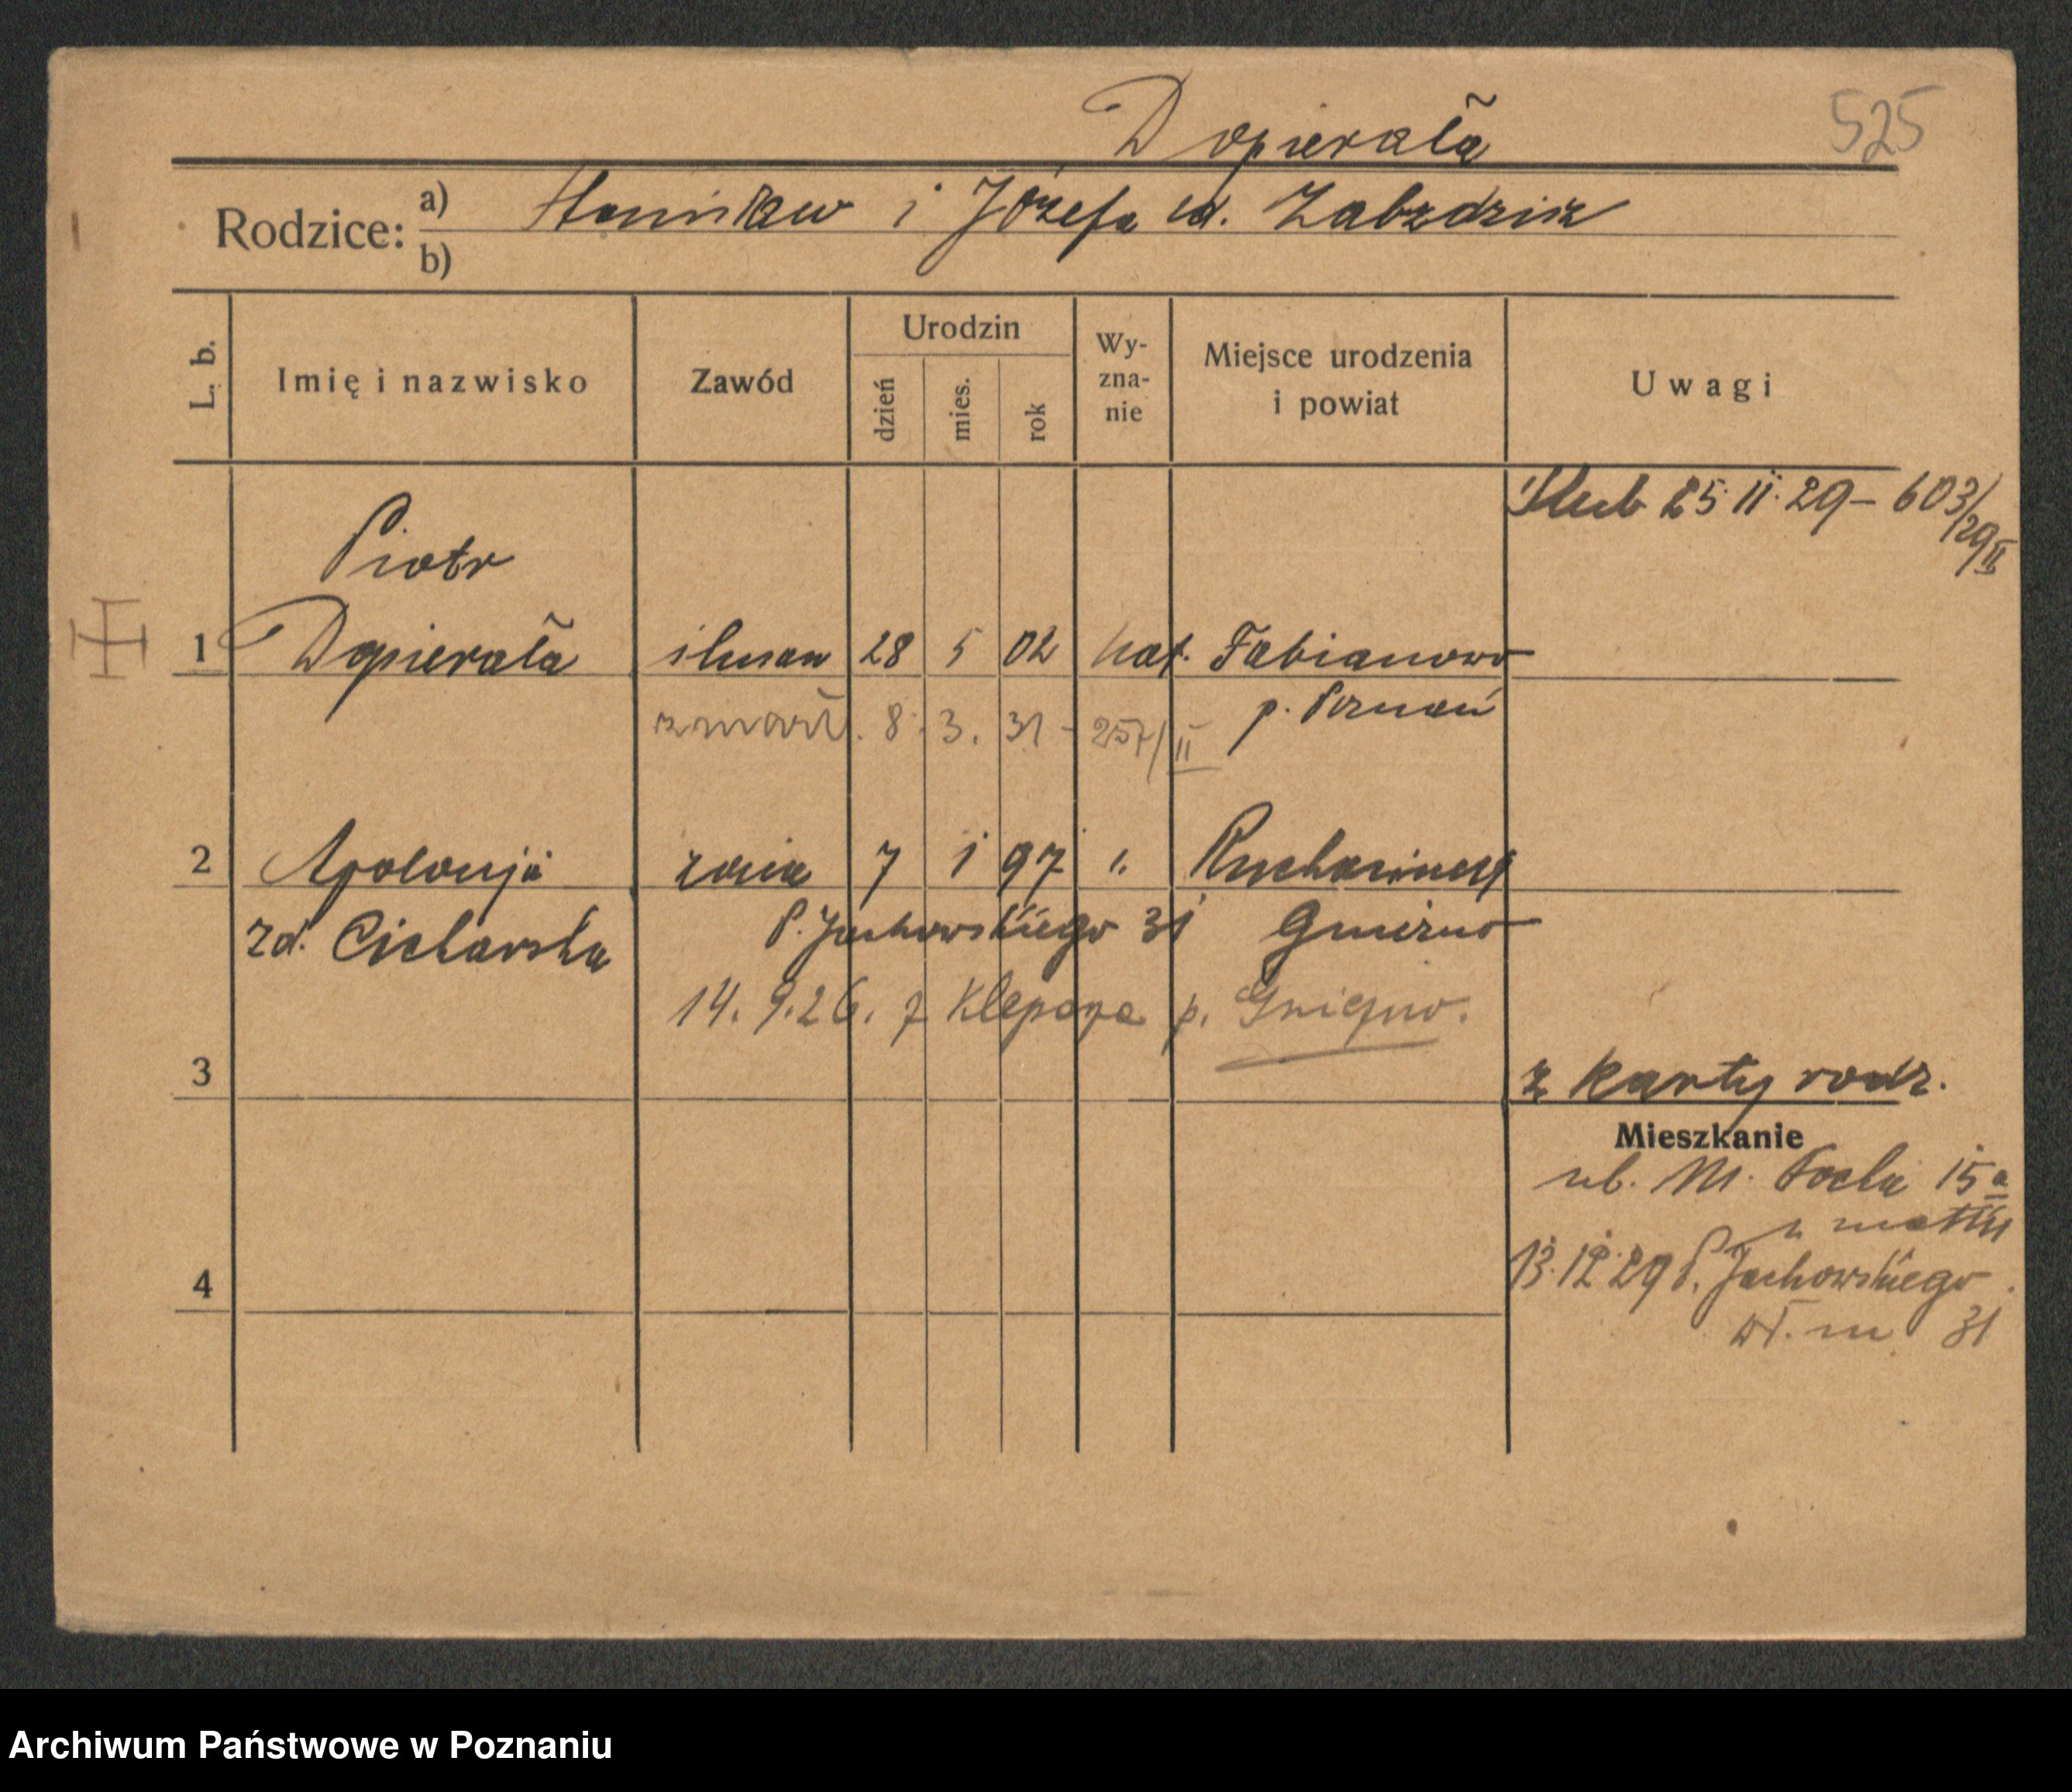 Dopierała
525
Rodzice: a) Stanisław i Józefa zd.
b)
L. b.
Imię i nazwisko
Zawód
Urodzin
dzień
mies.
rok
Wy-
zna-
nie
Miejsce urodzenia
i powiat
Uwagi
Ślub 25.11.29 – 603/29 II
Piotr
1 Dopierała ślusarz 28 5 02 kat. Fabianowo
p. Poznań
zmarł. 8. 3. 31 - 257/II
2 Apolonja żona 7 1 97 ". 
zd. P. Jackowskiego 31
14. 9. 26. z p. Gniezno.
3
z karty rodz.
Mieszkanie
ul. M. Focha 15a
u matki
13.12.29 P. Jackowskiego
wł. m 31
4
Archiwum Państwowe w Poznaniu